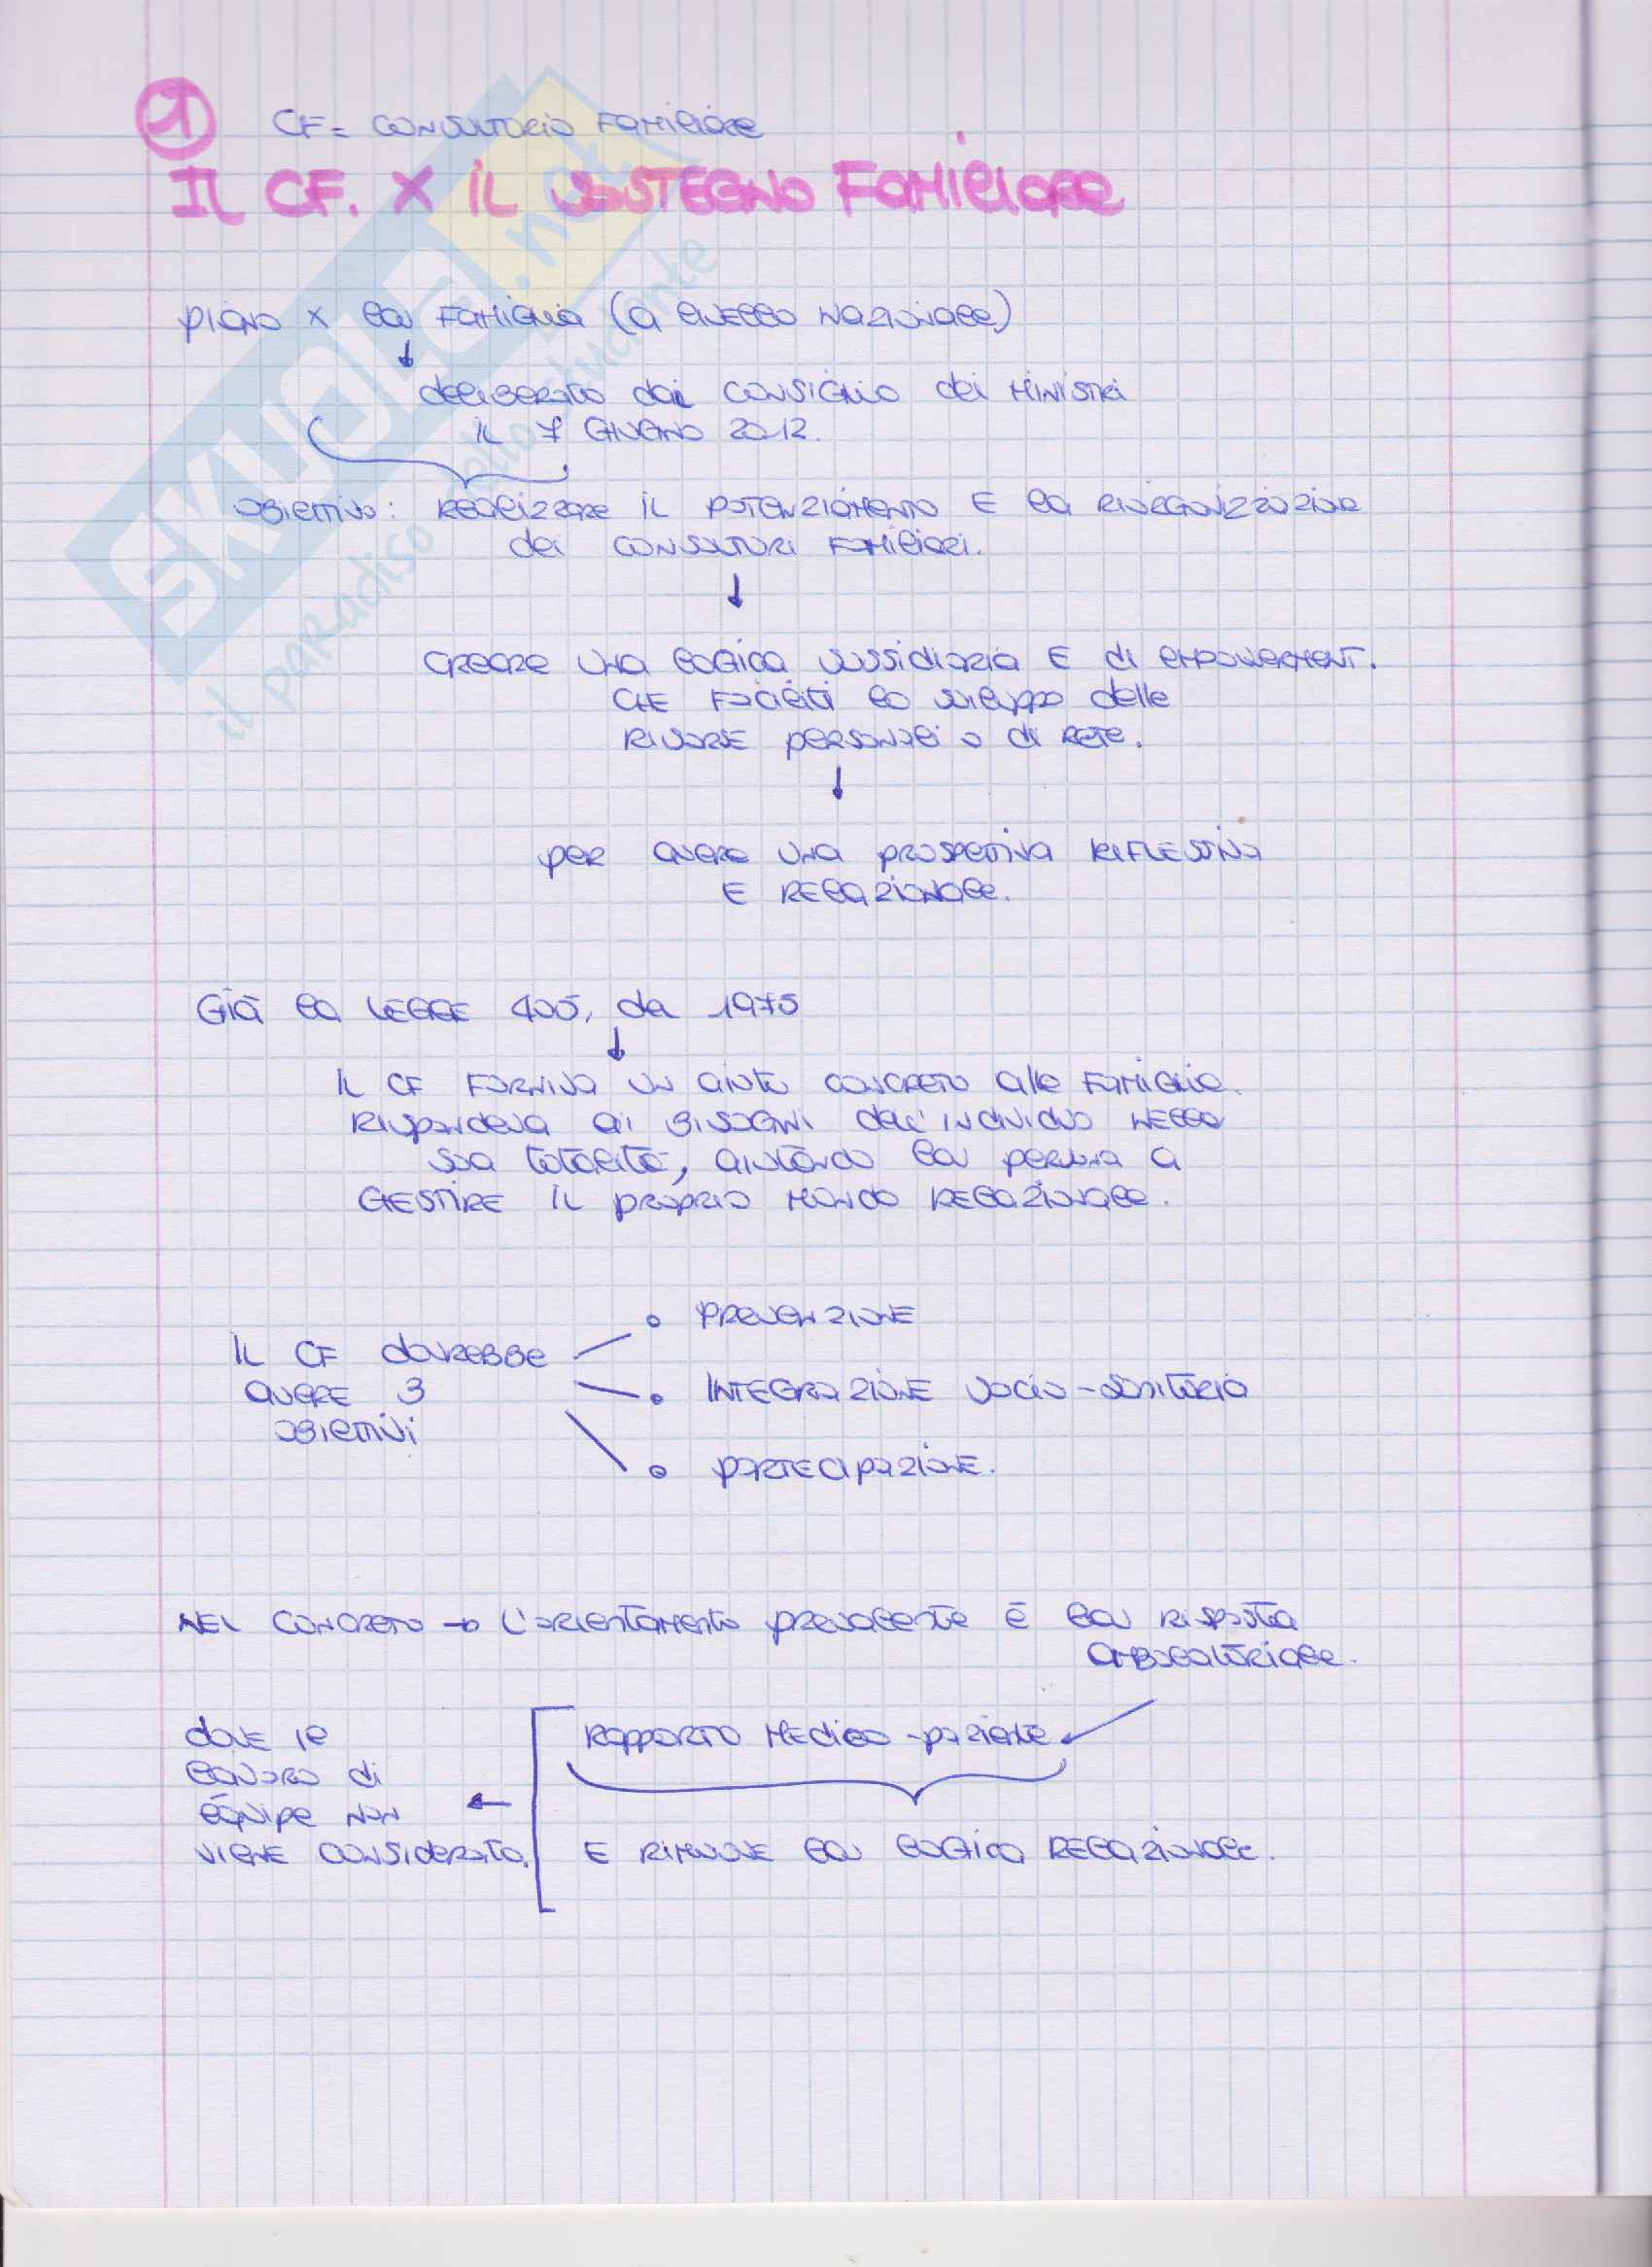 1
CF = CONSULTORIO FAMILIARE
IL CF. X IL SOSTEGNO FAMILIARE
PIANO X la FAMIGLIA (a livello NAZIONALE)
↓
deliberato dal CONSIGLIO dei MINISTRI
IL 7 GIUGNO 2012.
OBIETTIVO: REALIZZARE IL POTENZIAMENTO E la RIORGANIZZAZIONE
dei CONSULTORI FAMILIARI.
↓
CREARE UNA LOGICA SUSSIDIARIA E di EMPOWERMENT.
CHE FACILITI lo SVILUPPO delle
RISORSE PERSONALI o di RETE.
↓
PER AVERE UNA PROSPETTIVA RIFLESSIVA
E RELAZIONALE.
GIÀ la LEGGE 405, del 1975
↓
IL CF FORNIVA UN AIUTO CONCRETO alle FAMIGLIE.
RISPONDEVA AI BISOGNI dell'INDIVIDUO NELLA
SUA TOTALITÀ, AIUTANDO la PERSONA A
GESTIRE IL PROPRIO MONDO RELAZIONALE.
IL CF dovrebbe
AVERE 3
OBIETTIVI
• PREVENZIONE
• INTEGRAZIONE SOCIO-SANITARIO
• PARTECIPAZIONE.
NEL CONCRETO → L'ORIENTAMENTO PREVALENTE È la RISPOSTA
AMBULATORIALE.
RAPPORTO MEDICO-PAZIENTE
E RIMUOVE la LOGICA RELAZIONALE.
←
DOVE IL
LAVORO di
ÉQUIPE NON
VIENE CONSIDERATO.
SKUOLA.net
il paradiso dello studente